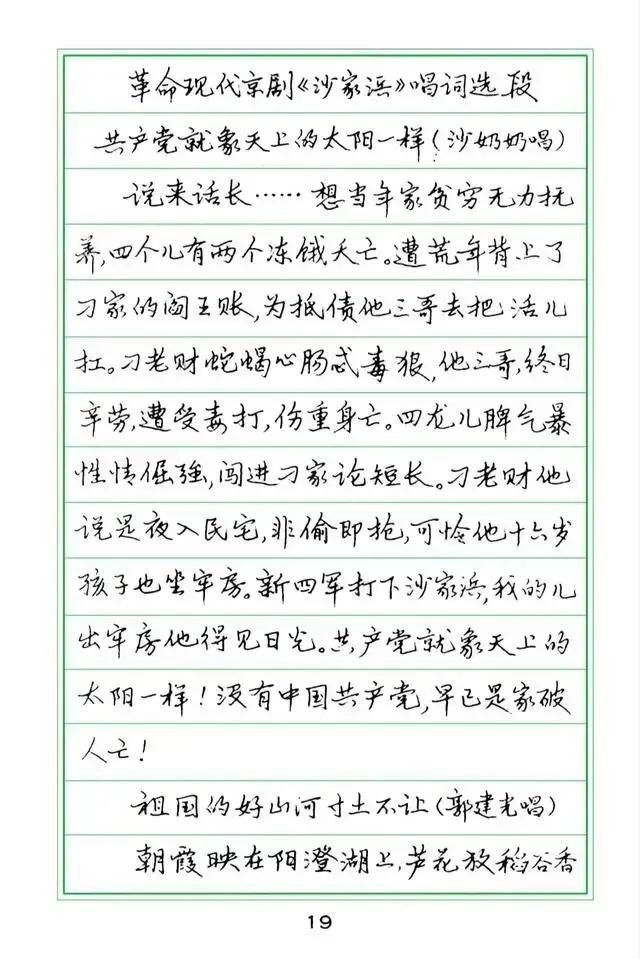 革命现代京剧《沙家浜》唱词选段
共产党就象天上的太阳一样(沙奶奶唱)
说来话长……想当年家贫穷无力抚
养,四个儿有两个冻饿夭亡。遭荒年背上了
刁家的阎王账,为抵债他三哥去把活儿
扛。刁老财蛇蝎心肠忒毒狠,他三哥,终日
辛劳,遭受毒打,伤重身亡。四龙儿脾气暴
性情倔强,闯进刁家论短长。刁老财他
说是夜入民宅,非偷即抢,可怜他十六岁
孩子也坐牢房。新四军打下沙家浜,我的儿
出牢房他得见日光。共产党就象天上的
太阳一样!没有中国共产党,早已是家破
人亡!
祖国的好山河寸土不让(郭建光唱)
朝霞映在阳澄湖上,芦花放稻谷香
19